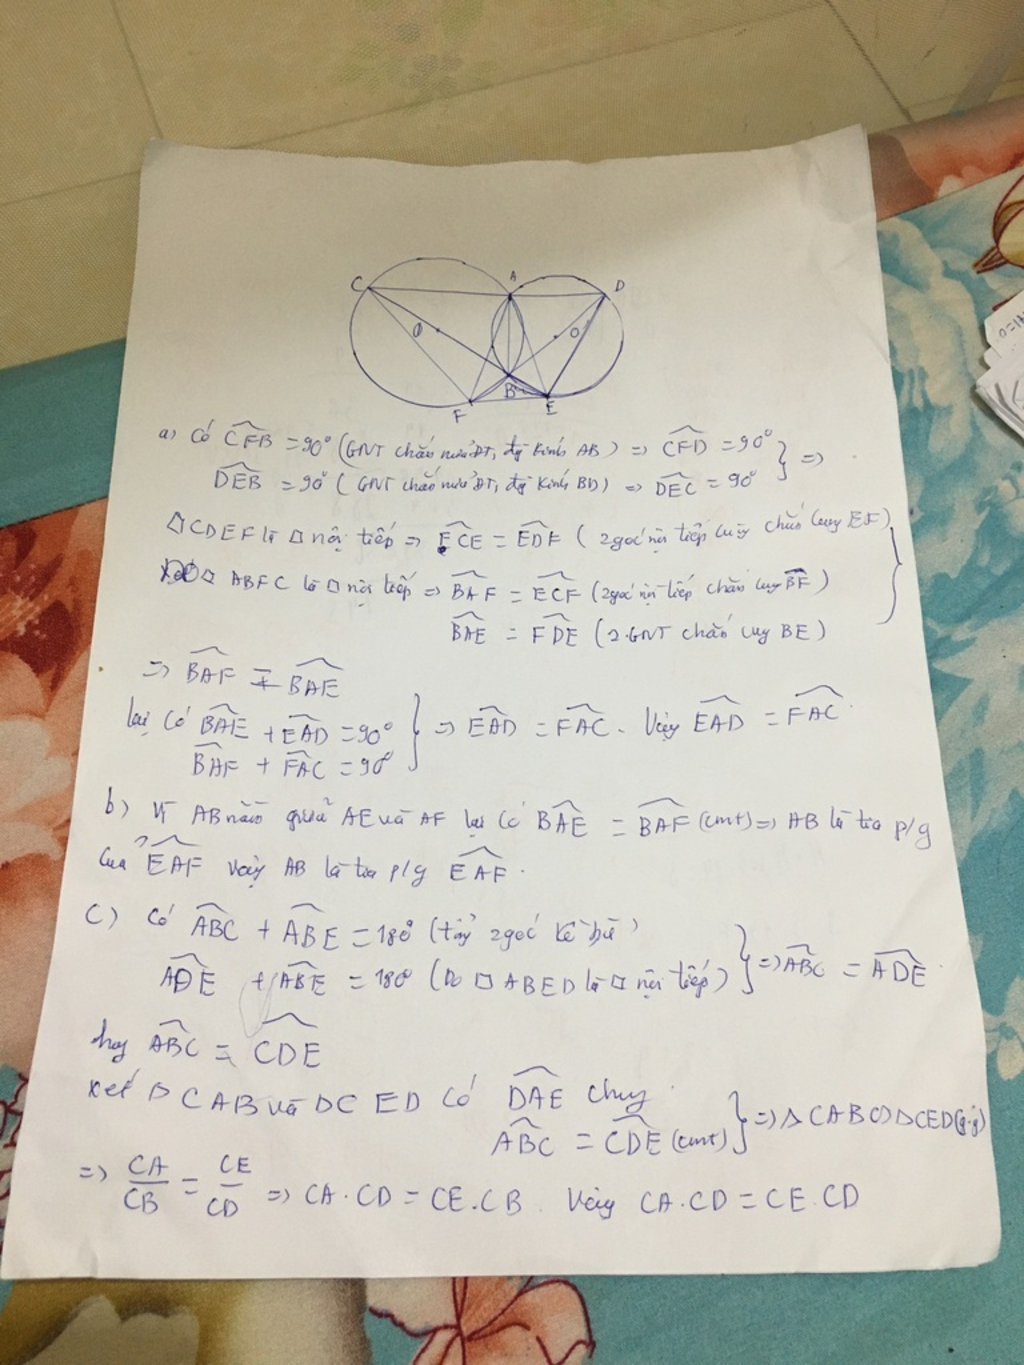 C A D
O O
B E
F
a) Có CFB = 90° (GNT chắn nửa ĐT, đg kính AB) => CFD = 90°
DEB = 90° (GNT chắn nửa ĐT, đg kính BD) => DEC = 90° } =>
□CDEF là □ nội tiếp => ECE = EDF (2 góc nội tiếp cùng chắn cung EF)
□ ABFC là □ nội tiếp => BAF = ECF (2 góc nội tiếp chắn cung BF)
BAE = FDE (2 GNT chắn cung BE) }
=> BAF = BAE
lại có BAE + EAD = 90°
BAF + FAC = 90° } => EAD = FAC. Vậy EAD = FAC
b) Vì AB nằm giữa AE và AF lại có BAE = BAF (cmt) => AB là tia p/g
của EAF vậy AB là tia p/g EAF.
c) Có ABC + ABE = 180° (2 góc kề bù)
ADE + ABE = 180° (Do □ ABED là □ nội tiếp) } => ABC = ADE
hay ABC = CDE
xét Δ CAB và Δ CED có DAE chung
ABC = CDE (cmt) } => Δ CAB ∽ Δ CED (g.g)
=> CA/CB = CE/CD => CA.CD = CE.CB. Vậy CA.CD = CE.CD